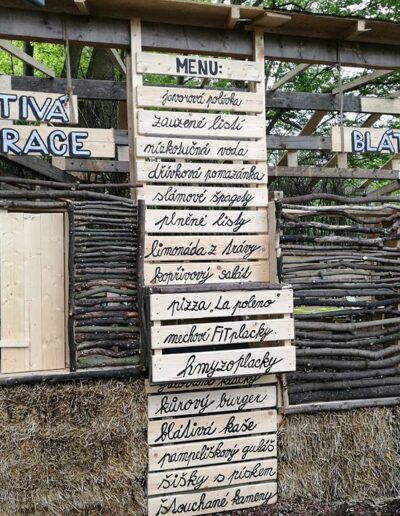 MENU:
TIVÁ
RACE
BLÁT
javorová polívka
zauzené listí
nízkotučná voda
dřívková pomazánka
slámové špagety
plněné listy
limonáda z trávy
kopřivový salát
pizza „La poleno"
mechové FIT placky
hmyzoplacky
kůrový burger
blátivá kaše
pampeliškový guláš
šišky s pískem
šťouchané kameny